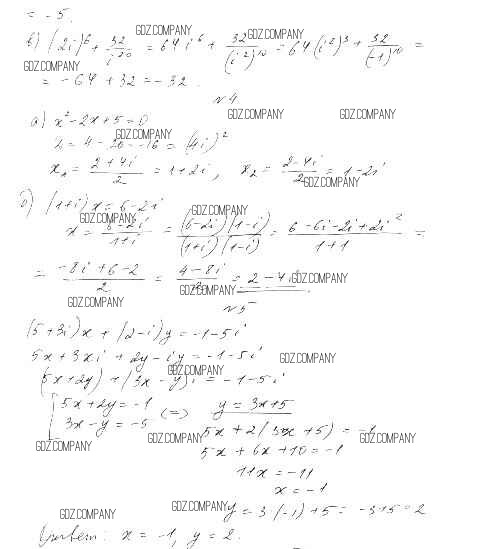 = -5.
в) (2i)^6 + 32/i^20 = 64i^6 + 32/(i^2)^10 = 64(i^2)^3 + 32/(-1)^10 =
GDZ.COMPANY GDZ.COMPANY
GDZ.COMPANY
= -64 + 32 = -32.
N4.
GDZ.COMPANY GDZ.COMPANY
а) x^2 - 2x + 5 = 0
GDZ.COMPANY
= 4 - 20 = -16 = (4i)^2
x_1 = (2+4i)/2 = 1+2i, x_2 = (2-4i)/2 = 1-2i
GDZ.COMPANY
б) (1+i)x = 6-2i
GDZ.COMPANY GDZ.COMPANY
x = (6-2i)/(1+i) = ((6-2i)(1-i))/((1+i)(1-i)) = (6-6i-2i+2i^2)/(1+1) =
= (-8i+6-2)/2 = (4-8i)/2 = 2-4i
GDZ.COMPANY GDZ.COMPANY GDZ.COMPANY
N5
(5+3i)x + (2-i)y = -1-5i
5x + 3xi + 2y - iy = -1-5i
GDZ.COMPANY
GDZ.COMPANY
(5x+2y) + (3x-y)i = -1-5i
5x+2y = -1
3x-y = -5 <=> y = 3x+5
GDZ.COMPANY GDZ.COMPANY GDZ.COMPANY
5x + 2(3x+5) = -1
5x + 6x + 10 = -1
11x = -11
x = -1
GDZ.COMPANY GDZ.COMPANY
y = 3(-1)+5 = -3+5 = 2
Ответ: x = -1, y = 2.